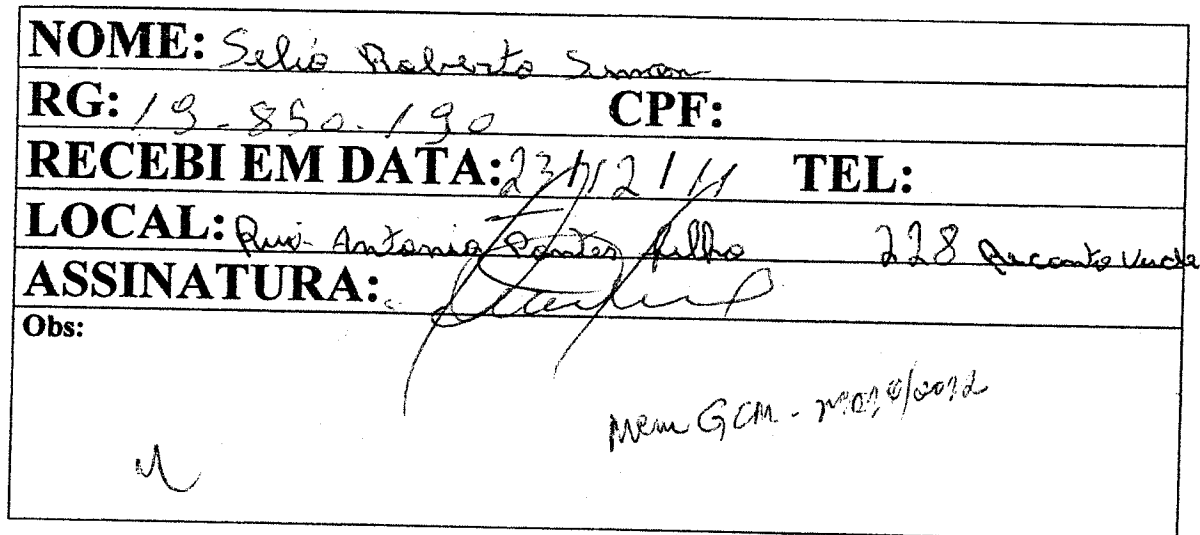 NOME: Selio Roberto Simon
RG: 19-850.190 CPF:
RECEBI EM DATA: 23/12/11 TEL:
LOCAL: Rua Antonio Pontes Filho 228 Recanto Verde
ASSINATURA:
Obs:
Mem GCM -